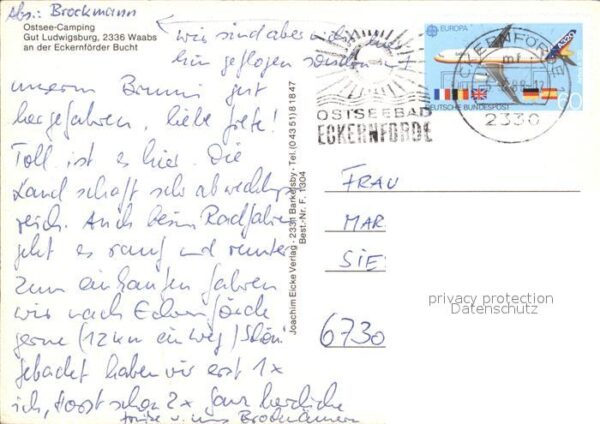 Abs.: Brockmann
Ostsee-Camping
Gut Ludwigsburg, 2336 Waabs
an der Eckernförder Bucht
wir sind aber nicht
hin geflogen sondern mit
unserm gut
hergefahren, liebe Grete!
Toll ist es hier. Die
Landschaft sehr abwechslungs
reich. Auch beim Radfahren
geht es rauf und runter
zum einkaufen fahren
wir nach Eckernförde
gerne (12 km ein weg) Schön
gebadet haben wir erst 1x
ich, Horst schon 2x ganz herzliche
Grüße v. uns Brockmännern
Joachim Eicke Verlag - 2331 Barkelsby - Tel. (0 43 51) 8 18 47
Best.-Nr. F. 1304
OSTSEEBAD
ECKERNFÖRDE
EUROPA
A320
DEUTSCHE BUNDESPOST
60
ECKERNFÖRDE
mf
2330
FRAU
MAR
SIE
6730
privacy protection
Datenschutz